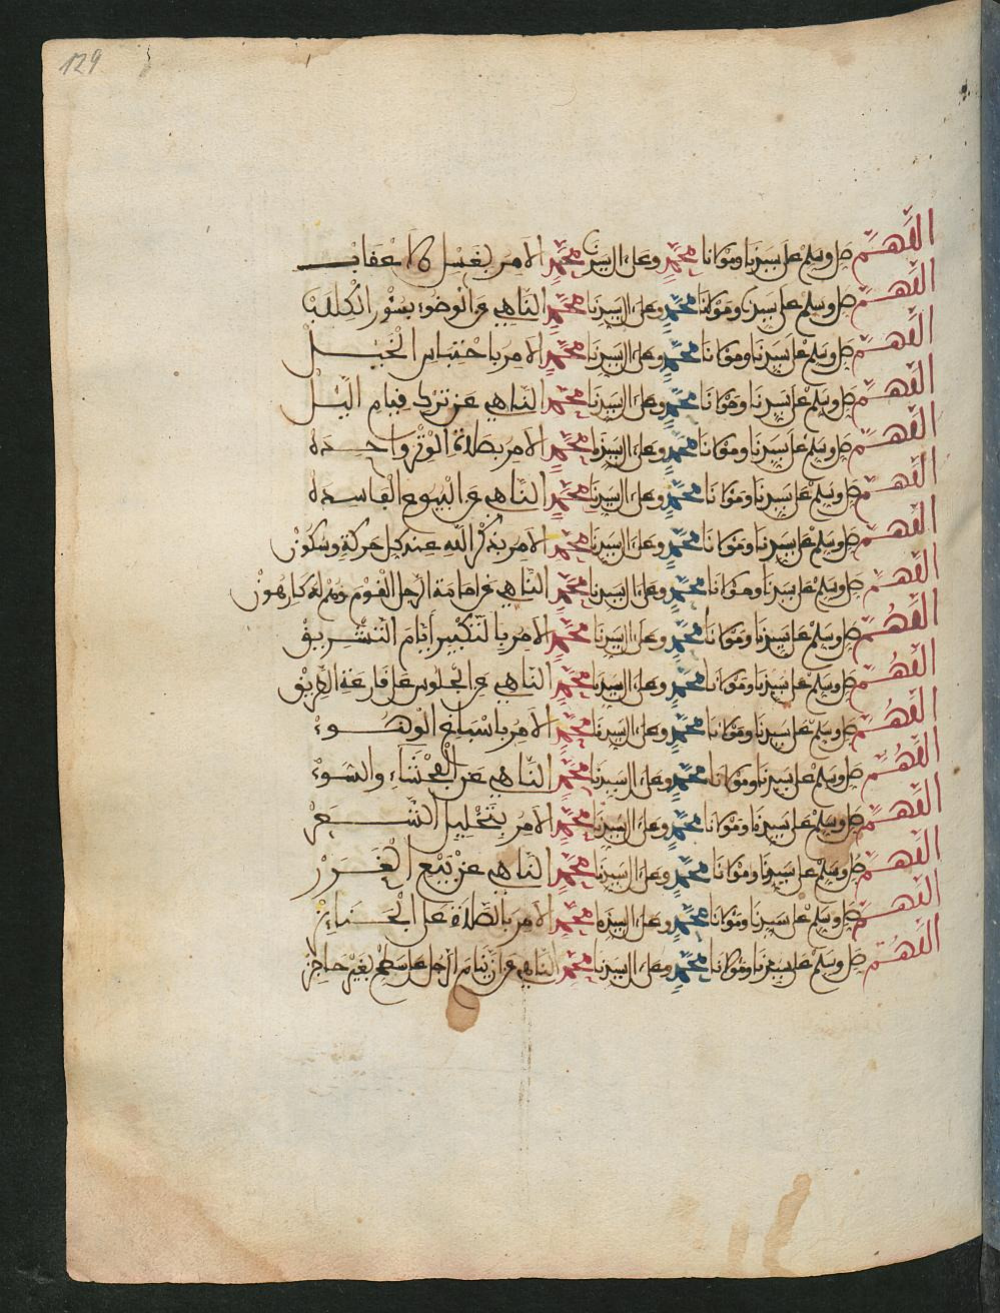 129
اللهم صل وسلم على سيدنا ومولانا محمد وعلى ال سيدنا محمد الامر بغسل الاعقاب
اللهم صل وسلم على سيدنا ومولانا محمد وعلى ال سيدنا محمد الناهي عن الوضوء بسؤر الكلب
اللهم صل وسلم على سيدنا ومولانا محمد وعلى ال سيدنا محمد الامر باحتباس الخيل
اللهم صل وسلم على سيدنا ومولانا محمد وعلى ال سيدنا محمد الناهي عن ترك قيام الليل
اللهم صل وسلم على سيدنا ومولانا محمد وعلى ال سيدنا محمد الامر بصلاة الوتر واحده
اللهم صل وسلم على سيدنا ومولانا محمد وعلى ال سيدنا محمد الناهي عن البيوع الفاسده
اللهم صل وسلم على سيدنا ومولانا محمد وعلى ال سيدنا محمد الامر بذكر الله عند كل حركة وسكون
اللهم صل وسلم على سيدنا ومولانا محمد وعلى ال سيدنا محمد الناهي عن امامة الرجل القوم وهم له كارهون
اللهم صل وسلم على سيدنا ومولانا محمد وعلى ال سيدنا محمد الامر بالتكبير أيام التشريق
اللهم صل وسلم على سيدنا ومولانا محمد وعلى ال سيدنا محمد الناهي عن الجلوس على قارعة الطريق
اللهم صل وسلم على سيدنا ومولانا محمد وعلى ال سيدنا محمد الامر باسباغ الوضوء
اللهم صل وسلم على سيدنا ومولانا محمد وعلى ال سيدنا محمد الناهي عن الفحشاء والسوء
اللهم صل وسلم على سيدنا ومولانا محمد وعلى ال سيدنا محمد الامر بتخليل الشعر
اللهم صل وسلم على سيدنا ومولانا محمد وعلى ال سيدنا محمد الناهي عن بيع الغرر
اللهم صل وسلم على سيدنا ومولانا محمد وعلى ال سيدنا محمد الامر بالصلاة على الجنائز
اللهم صل وسلم على سيدنا ومولانا محمد وعلى ال سيدنا محمد الناهي عن ان ينام الرجل على سطح بغير حاجز